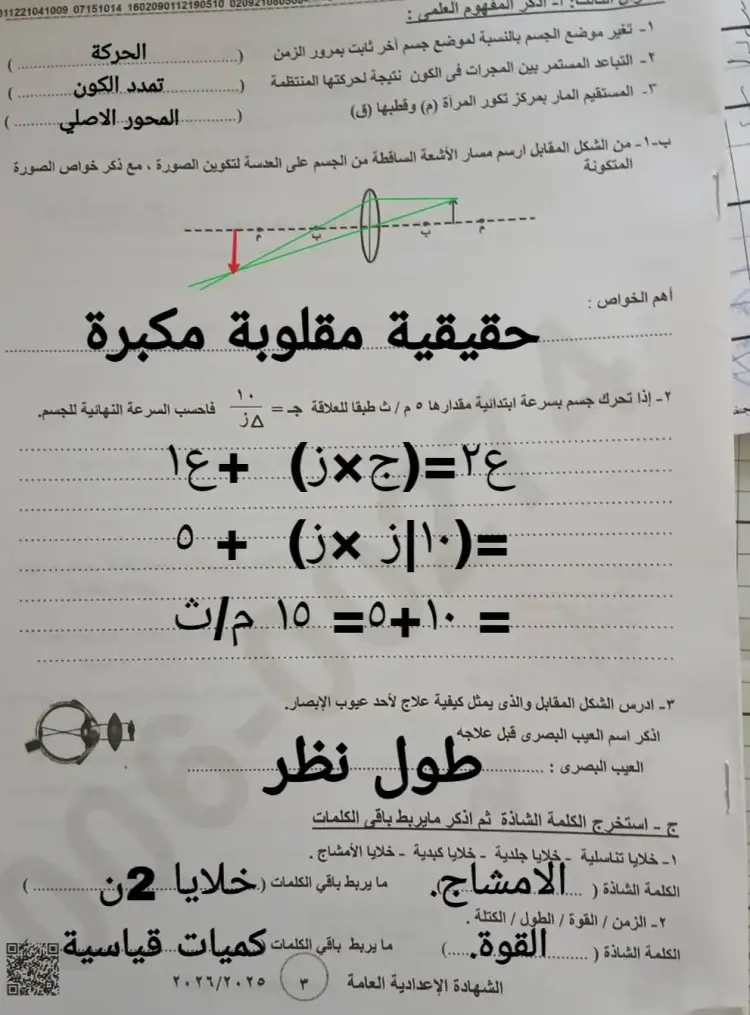 011221041009 07151014 1602090112190510
اذكر المفهوم العلمى :
١- تغير موضع الجسم بالنسبة لموضع جسم آخر ثابت بمرور الزمن (الحركة)
٢- التباعد المستمر بين المجرات فى الكون نتيجة لحركتها المنتظمة (تمدد الكون)
٣- المستقيم المار بمركز تكور المرآة (م) وقطبها (ق) (المحور الاصلي)
ب-١- من الشكل المقابل ارسم مسار الأشعة الساقطة من الجسم على العدسة لتكوين الصورة ، مع ذكر خواص الصورة
المتكونة
م ب ب م
أهم الخواص :
حقيقية مقلوبة مكبرة
٢- إذا تحرك جسم بسرعة ابتدائية مقدارها ٥ م / ث طبقا للعلاقة جـ = ١٠ / Δز فاحسب السرعة النهائية للجسم.
ع٢=(ج×ز) +ع١
=(١٠|ز ×ز) + ٥
= ١٠+٥= ١٥ م/ث
٣- ادرس الشكل المقابل والذى يمثل كيفية علاج لأحد عيوب الإبصار.
اذكر اسم العيب البصرى قبل علاجه
العيب البصرى : طول نظر
ج - استخرج الكلمة الشاذة ثم اذكر مايربط باقى الكلمات
١- خلايا تناسلية - خلايا جلدية - خلايا كبدية - خلايا الأمشاج .
الكلمة الشاذة (الامشاج.) ما يربط باقي الكلمات (خلايا 2ن)
٢- الزمن / القوة / الطول / الكتلة .
الكلمة الشاذة (القوة.) ما يربط باقي الكلمات (كميات قياسية
الشهادة الإعدادية العامة ٣ ٢٠٢٦/٢٠٢٥